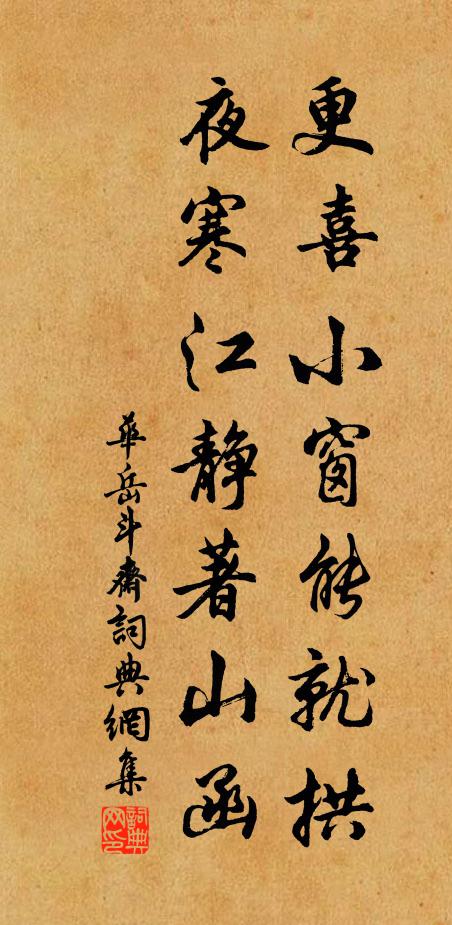 更喜小窗能就拱
夜寒江静著山函
華岳斗齋詞典網集
詞典网印